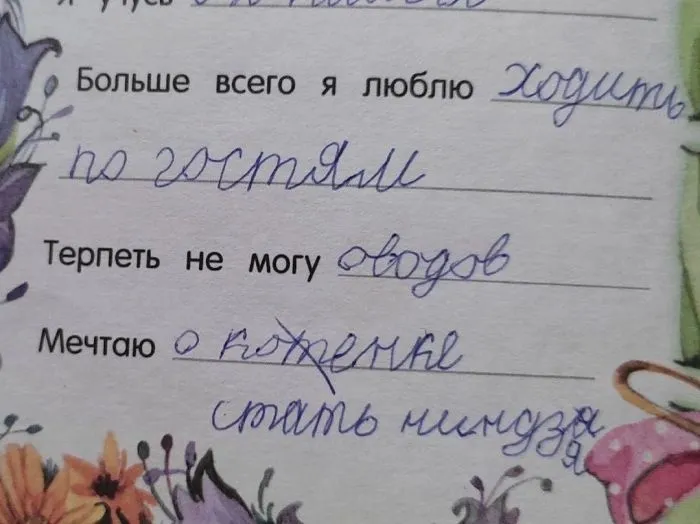 Я учусь
Больше всего я люблю ходить
по гостям
Терпеть не могу оводов
Мечтаю о котенке
стать ниндзя
я